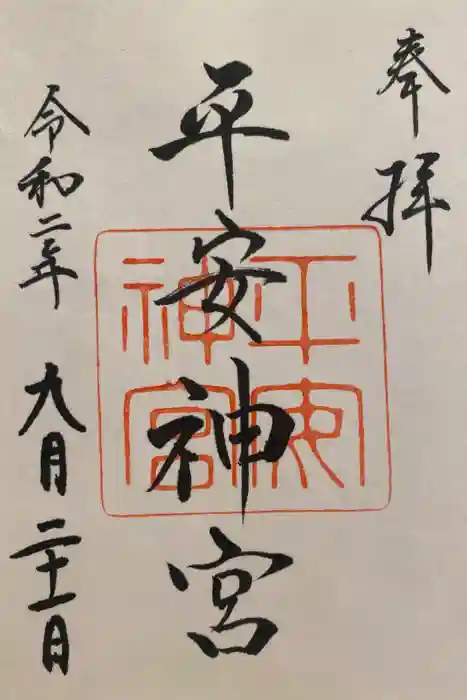 奉拝
平安神宮
平安神宮
令和二年
九月二十一日